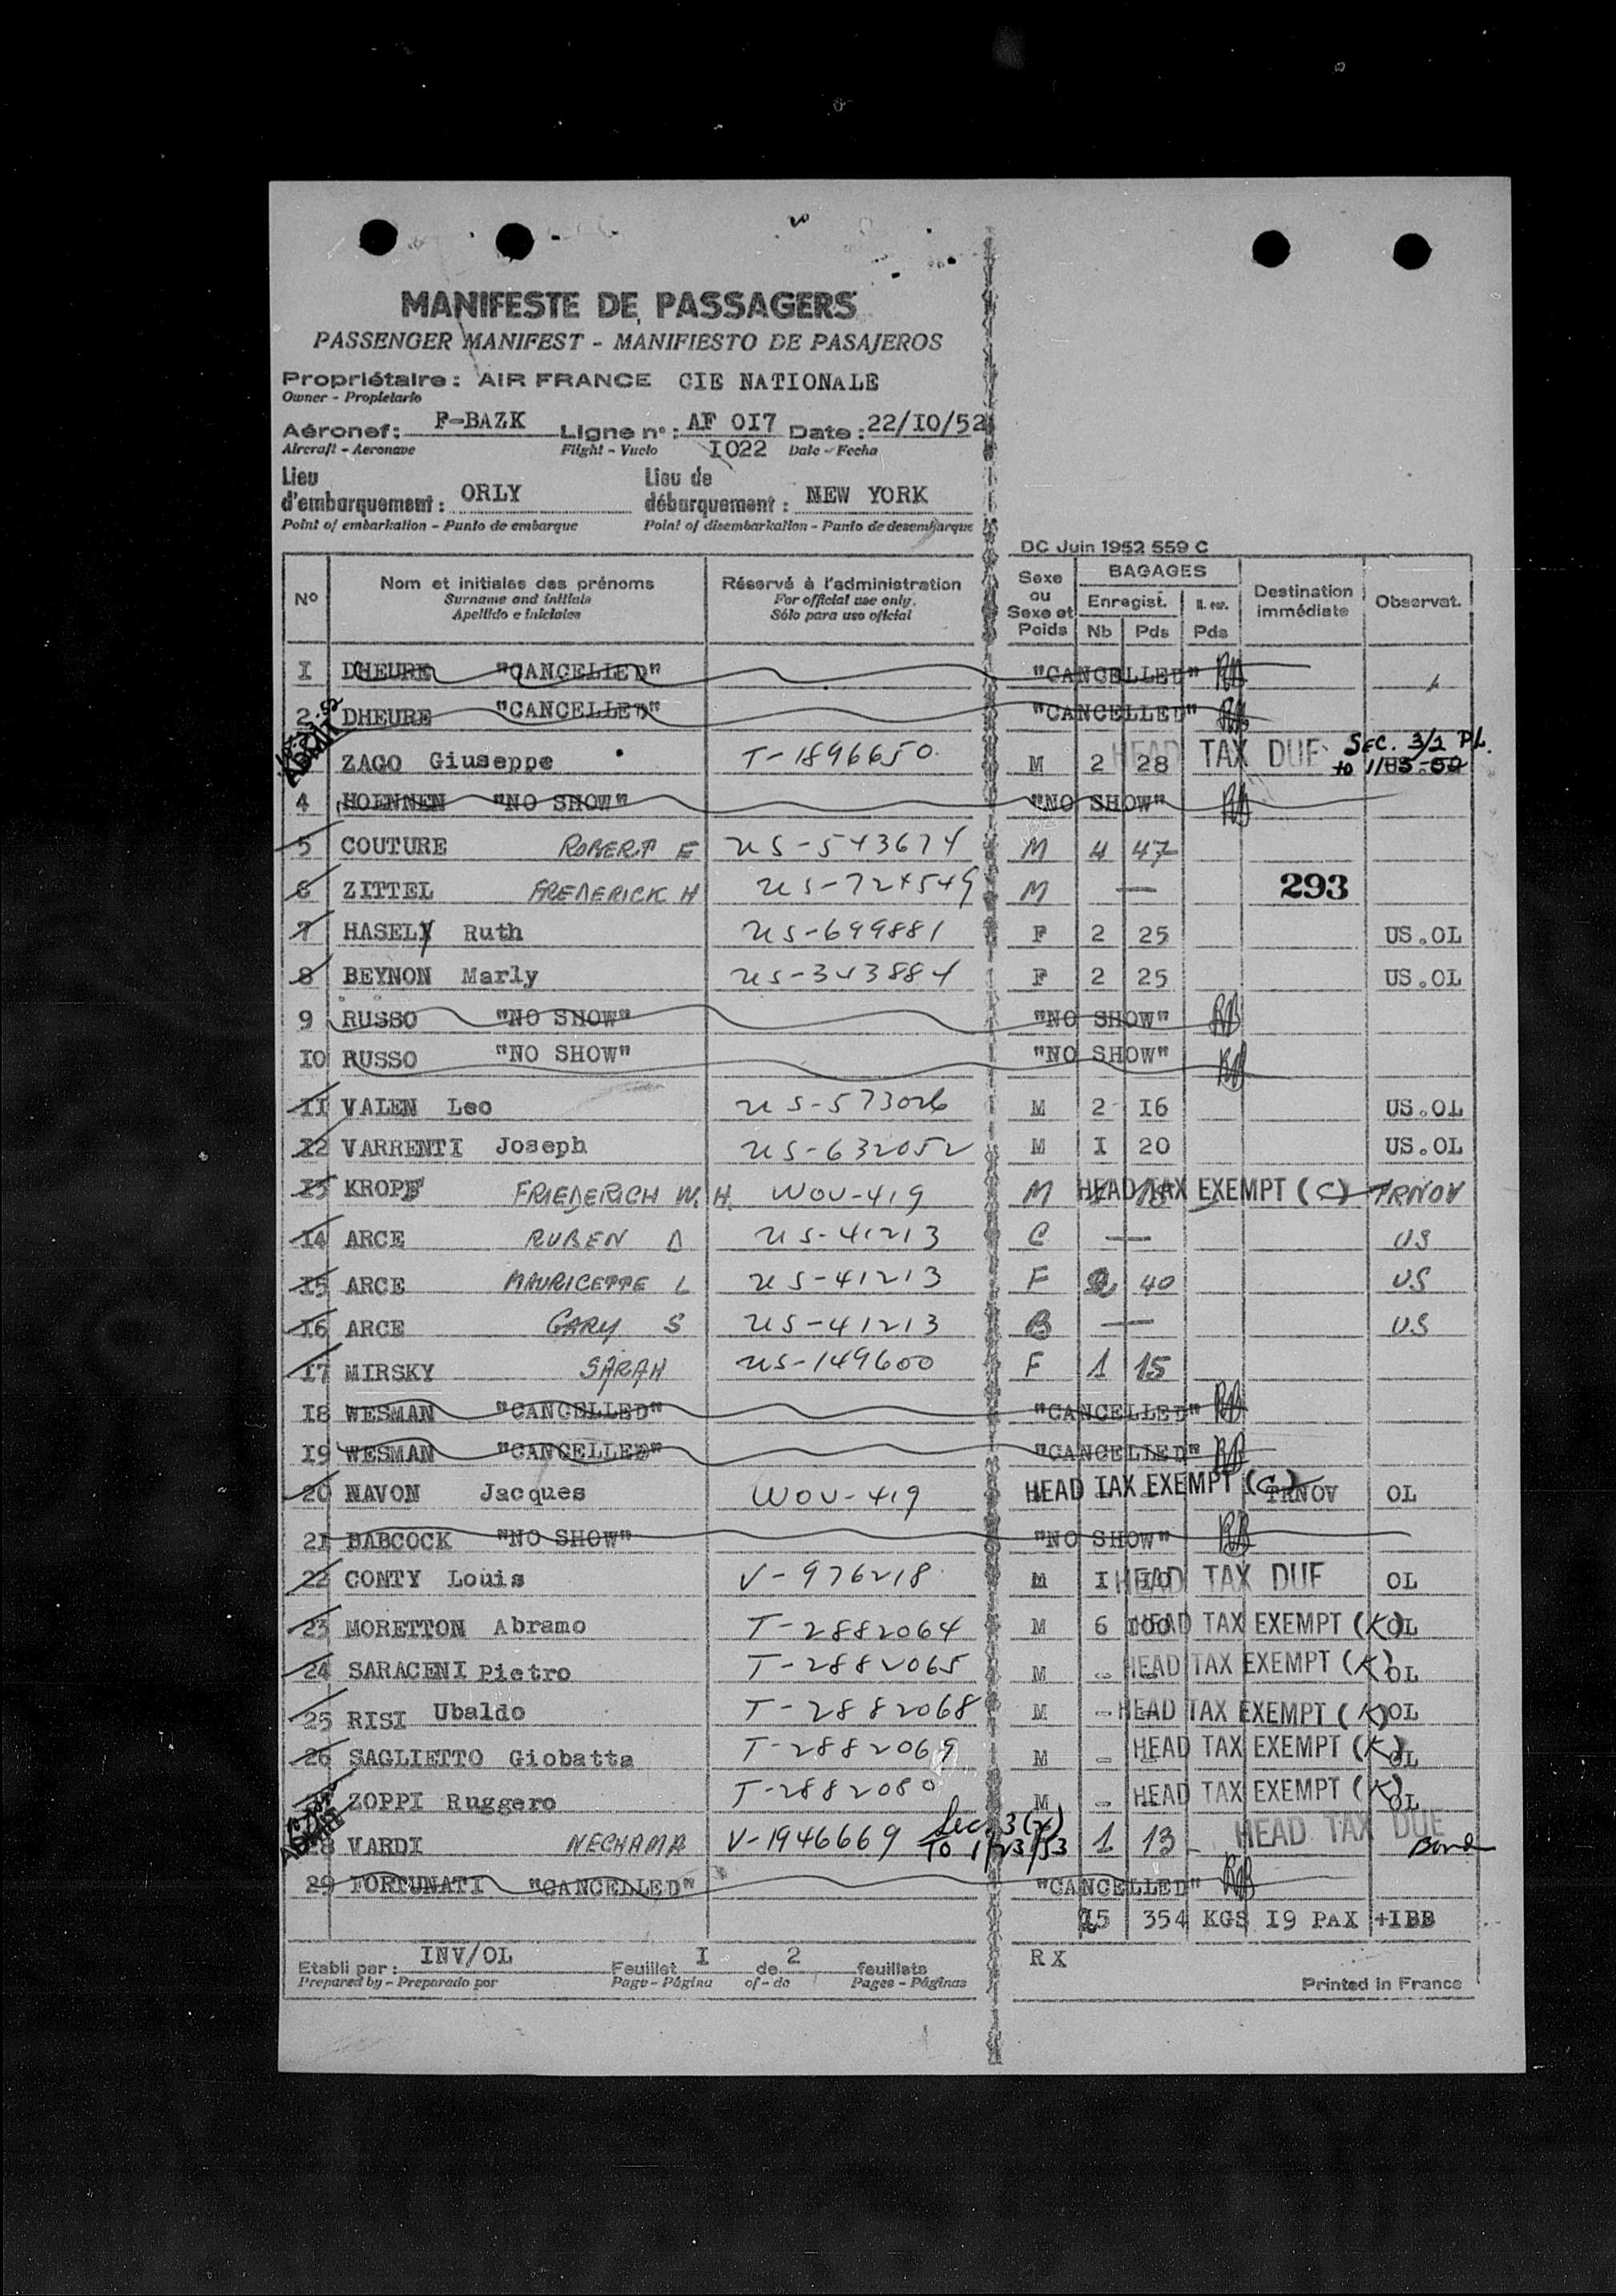 MANIFESTE DE PASSAGERS
PASSENGER MANIFEST - MANIFIESTO DE PASAJEROS
Propriétaire : AIR FRANCE CIE NATIONALE
Owner - Propietario
Aéronef : F-BAZK Ligne n° : AF 0I7 Date : 22/I0/52
Aircraft - Aeronave Flight - Vuelo I022 Date - Fecha
Lieu d'embarquement : ORLY Lieu de débarquement : NEW YORK
Point of embarkation - Punto de embarque Point of disembarkation - Punto de desembarque
DC Juin 1952 559 C
N° Nom et initiales des prénoms Réservé à l'administration Sexe ou Sexe et Poids BAGAGES Destination immédiate Observat.
Surname and initials For official use only. Enregist. N. enr.
Apellido e iniciales Sólo para uso oficial Nb Pds Pds
I DHEURE "CANCELLED" "CANCELLED" RB
2 DHEURE "CANCELLED" "CANCELLED" RB
ADMIT
ZAGO Giuseppe T-1896650 M 2 28 HEAD TAX DUE SEC. 3/2 P.L.
to
4 HOENNEN "NO SHOW" "NO SHOW" RB
5 COUTURE ROBERT E US-543674 M 4 47
6 ZITTEL FREDERICK H US-724549 M — 293
7 HASELY Ruth US-699881 F 2 25 US.OL
8 BEYNON Marly US-343884 F 2 25 US.OL
9 RUSSO "NO SHOW" "NO SHOW" RB
I0 RUSSO "NO SHOW" "NO SHOW" RB
II VALEN Leo US-573026 M 2 I6 US.OL
I2 VARRENTI Joseph US-632052 M I 20 US.OL
I3 KROPF FRIEDERICH W.H. WOV-419 M HEAD TAX EXEMPT (C) TRNOV
I4 ARCE RUBEN D US-41213 C — US
I5 ARCE MAURICETTE L US-41213 F 2 40 US
I6 ARCE GARY S US-41213 B — US
I7 MIRSKY SARAH US-149600 F 1 15
I8 WESMAN "CANCELLED" "CANCELLED" RB
I9 WESMAN "CANCELLED" "CANCELLED" RB
20 NAVON Jacques WOV-419 HEAD TAX EXEMPT (C) TRNOV OL
2I BABCOCK "NO SHOW" "NO SHOW" RB
22 CONTY Louis V-976218 M I I0 HEAD TAX DUE OL
23 MORETTON Abramo T-2882064 M 6 I00 HEAD TAX EXEMPT (K) OL
24 SARACENI Pietro T-2882065 M - HEAD TAX EXEMPT (K) OL
25 RISI Ubaldo T-2882068 M - HEAD TAX EXEMPT (K) OL
26 SAGLIETTO Giobatta T-2882069 M - HEAD TAX EXEMPT (K) OL
ZOPPI Ruggero T-2882080 M - HEAD TAX EXEMPT (K) OL
ADMIT
28 VARDI NECHAMA V-1946669 Sec. 3(2) TO 1/23/53 1 13 HEAD TAX DUE Bond
29 FORTUNATI "CANCELLED" "CANCELLED" RB
25 354 KGS I9 PAX +IBB
Etabli par : INV/OL Feuillet I de 2 feuillets RX
Prepared by - Preparado por Page - Página of - de Pages - Páginas Printed in France